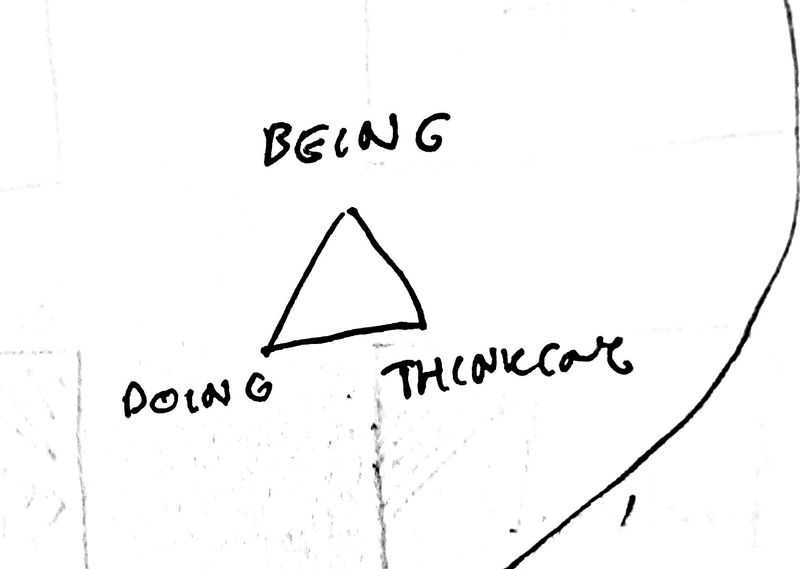 BEING
DOING THINKING